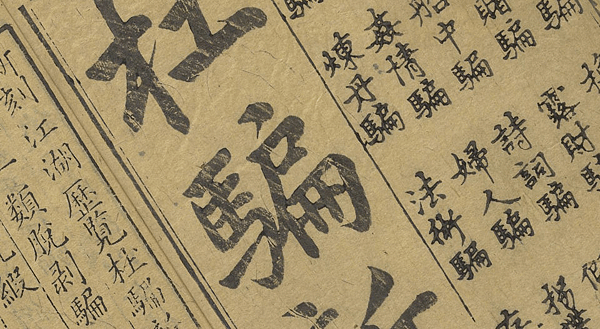 騙
賭騙
船中騙
姦情騙
煉丹騙
露財騙
詩詞騙
婦人騙
法術騙
杜騙新
刻江湖歷覽杜騙新
類脫剥騙
緞